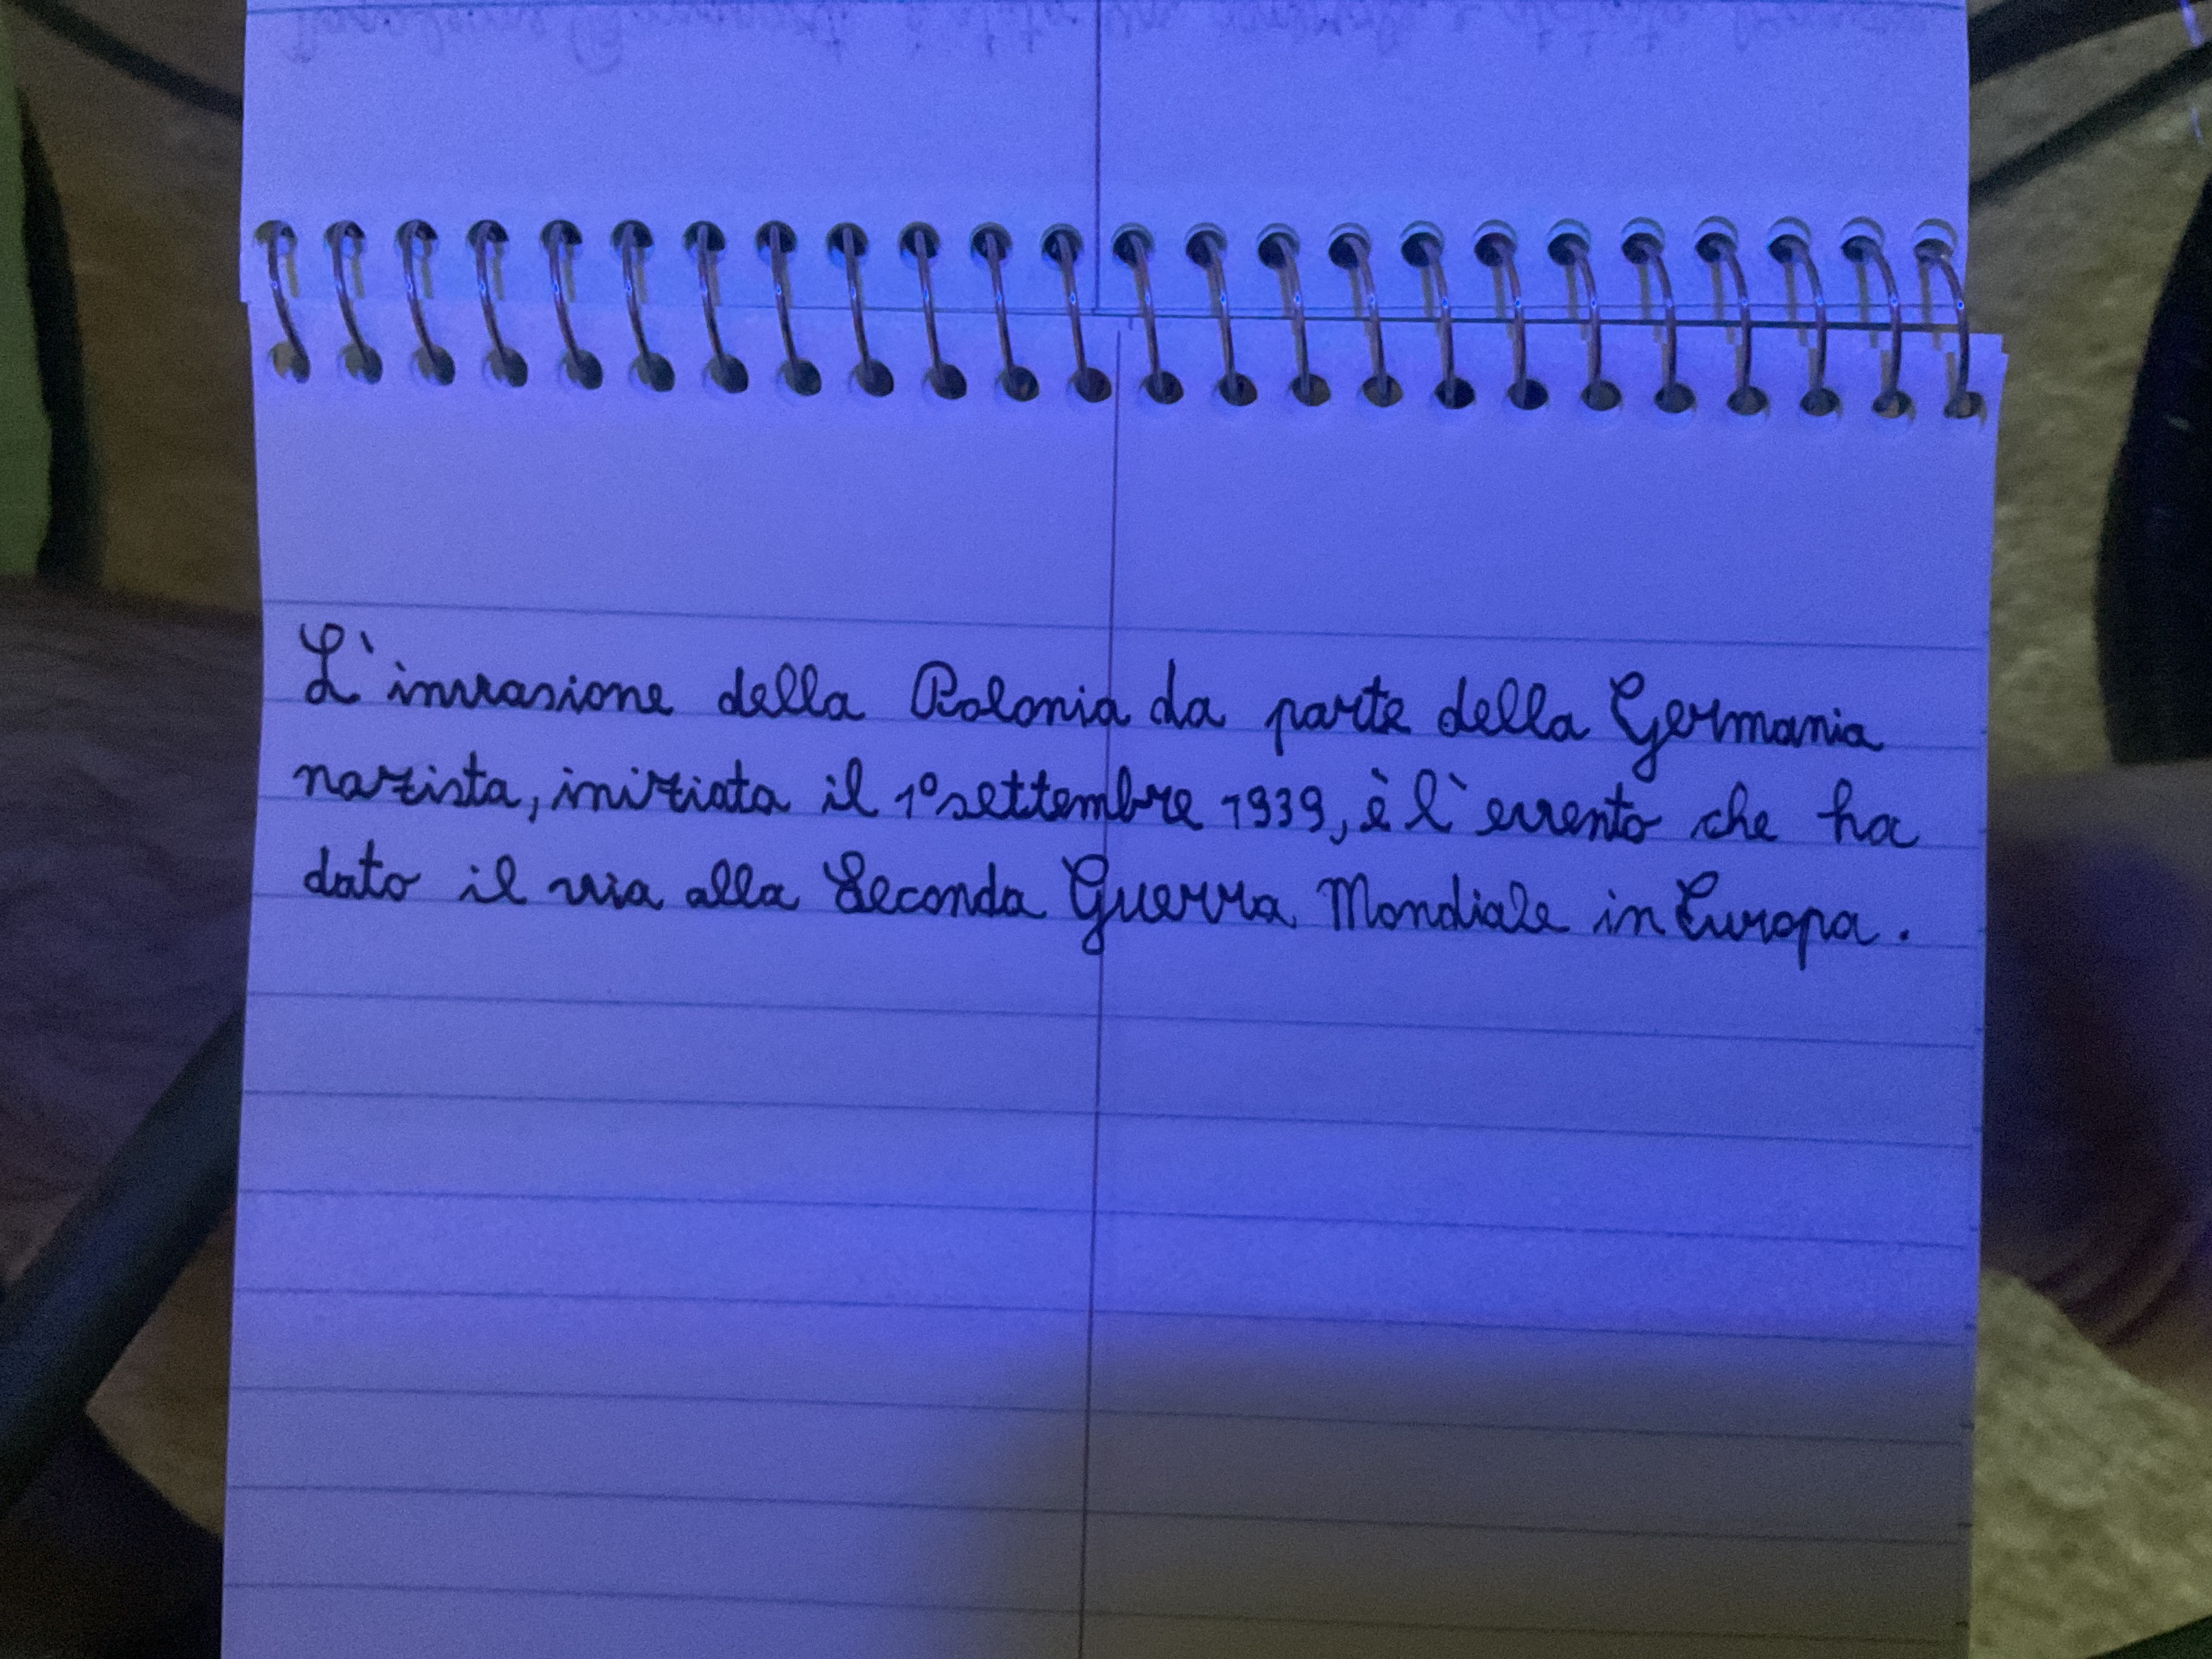 L'invasione della Polonia da parte della Germania
nazista, iniziata il 1° settembre 1939, è l'evento che ha
dato il via alla Seconda Guerra Mondiale in Europa.